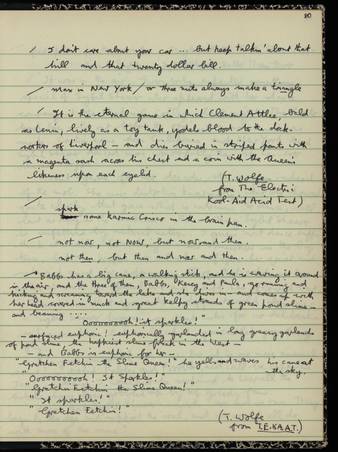 20
/ I don't care about your car ... but keep talkin' about that
hill and that twenty dollar bill.
/ man in New York / or three nuts always make a triangle
/ It is the eternal game in which Clement Attlee, bald
as Lenin, lively as a toy tank, yodels blood to the dock-
workers of Liverpool — and dies buried in striped pants with
a magenta sash across his chest and a coin with the Queen's
likeness upon each eyelid.
(T. Wolfe
from The Electric
Kool-Aid Acid Test)
/ spark
some karmic in the brain pan.
/ not now, not NOW, but now and then.
not then, but then and now and then.
/ Babbs has a big cane, a walking stick, and he is waving it around
in the air, and the three of them, Babbs, Kesey and Paula, go running and
kicking and screaming toward the lake and she dives in — and comes up with
her head covered in muck and great kelpy strands of green pond slime —
and beaming ...
Ooooooooh! it sparkles!"
— euphoric, euphorically, garlanded in long greasy garlands
of pond slime, the happiest slime freak in the West —
— and Babbs is euphoric for her —
"Gretchen Fetchin the Slime Queen!" he yells and waves his cane at
the sky.
Ooooooooooh! It Sparkles!"
"Gretchen Fetchin the Slime Queen!"
"It sparkles!"
"Gretchen Fetchin!"
(T. Wolfe
from T.E.K.A.A.T.)